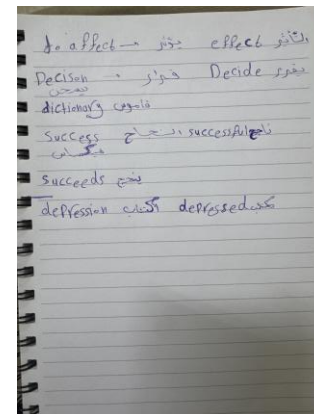 to affect → يؤثر effect التأثر
Decison → قرار Decide يقرر
dictionary قاموس
Success النجاح successful ناجح
succeeds ينجح
depression اكتئاب depressed مكتئب